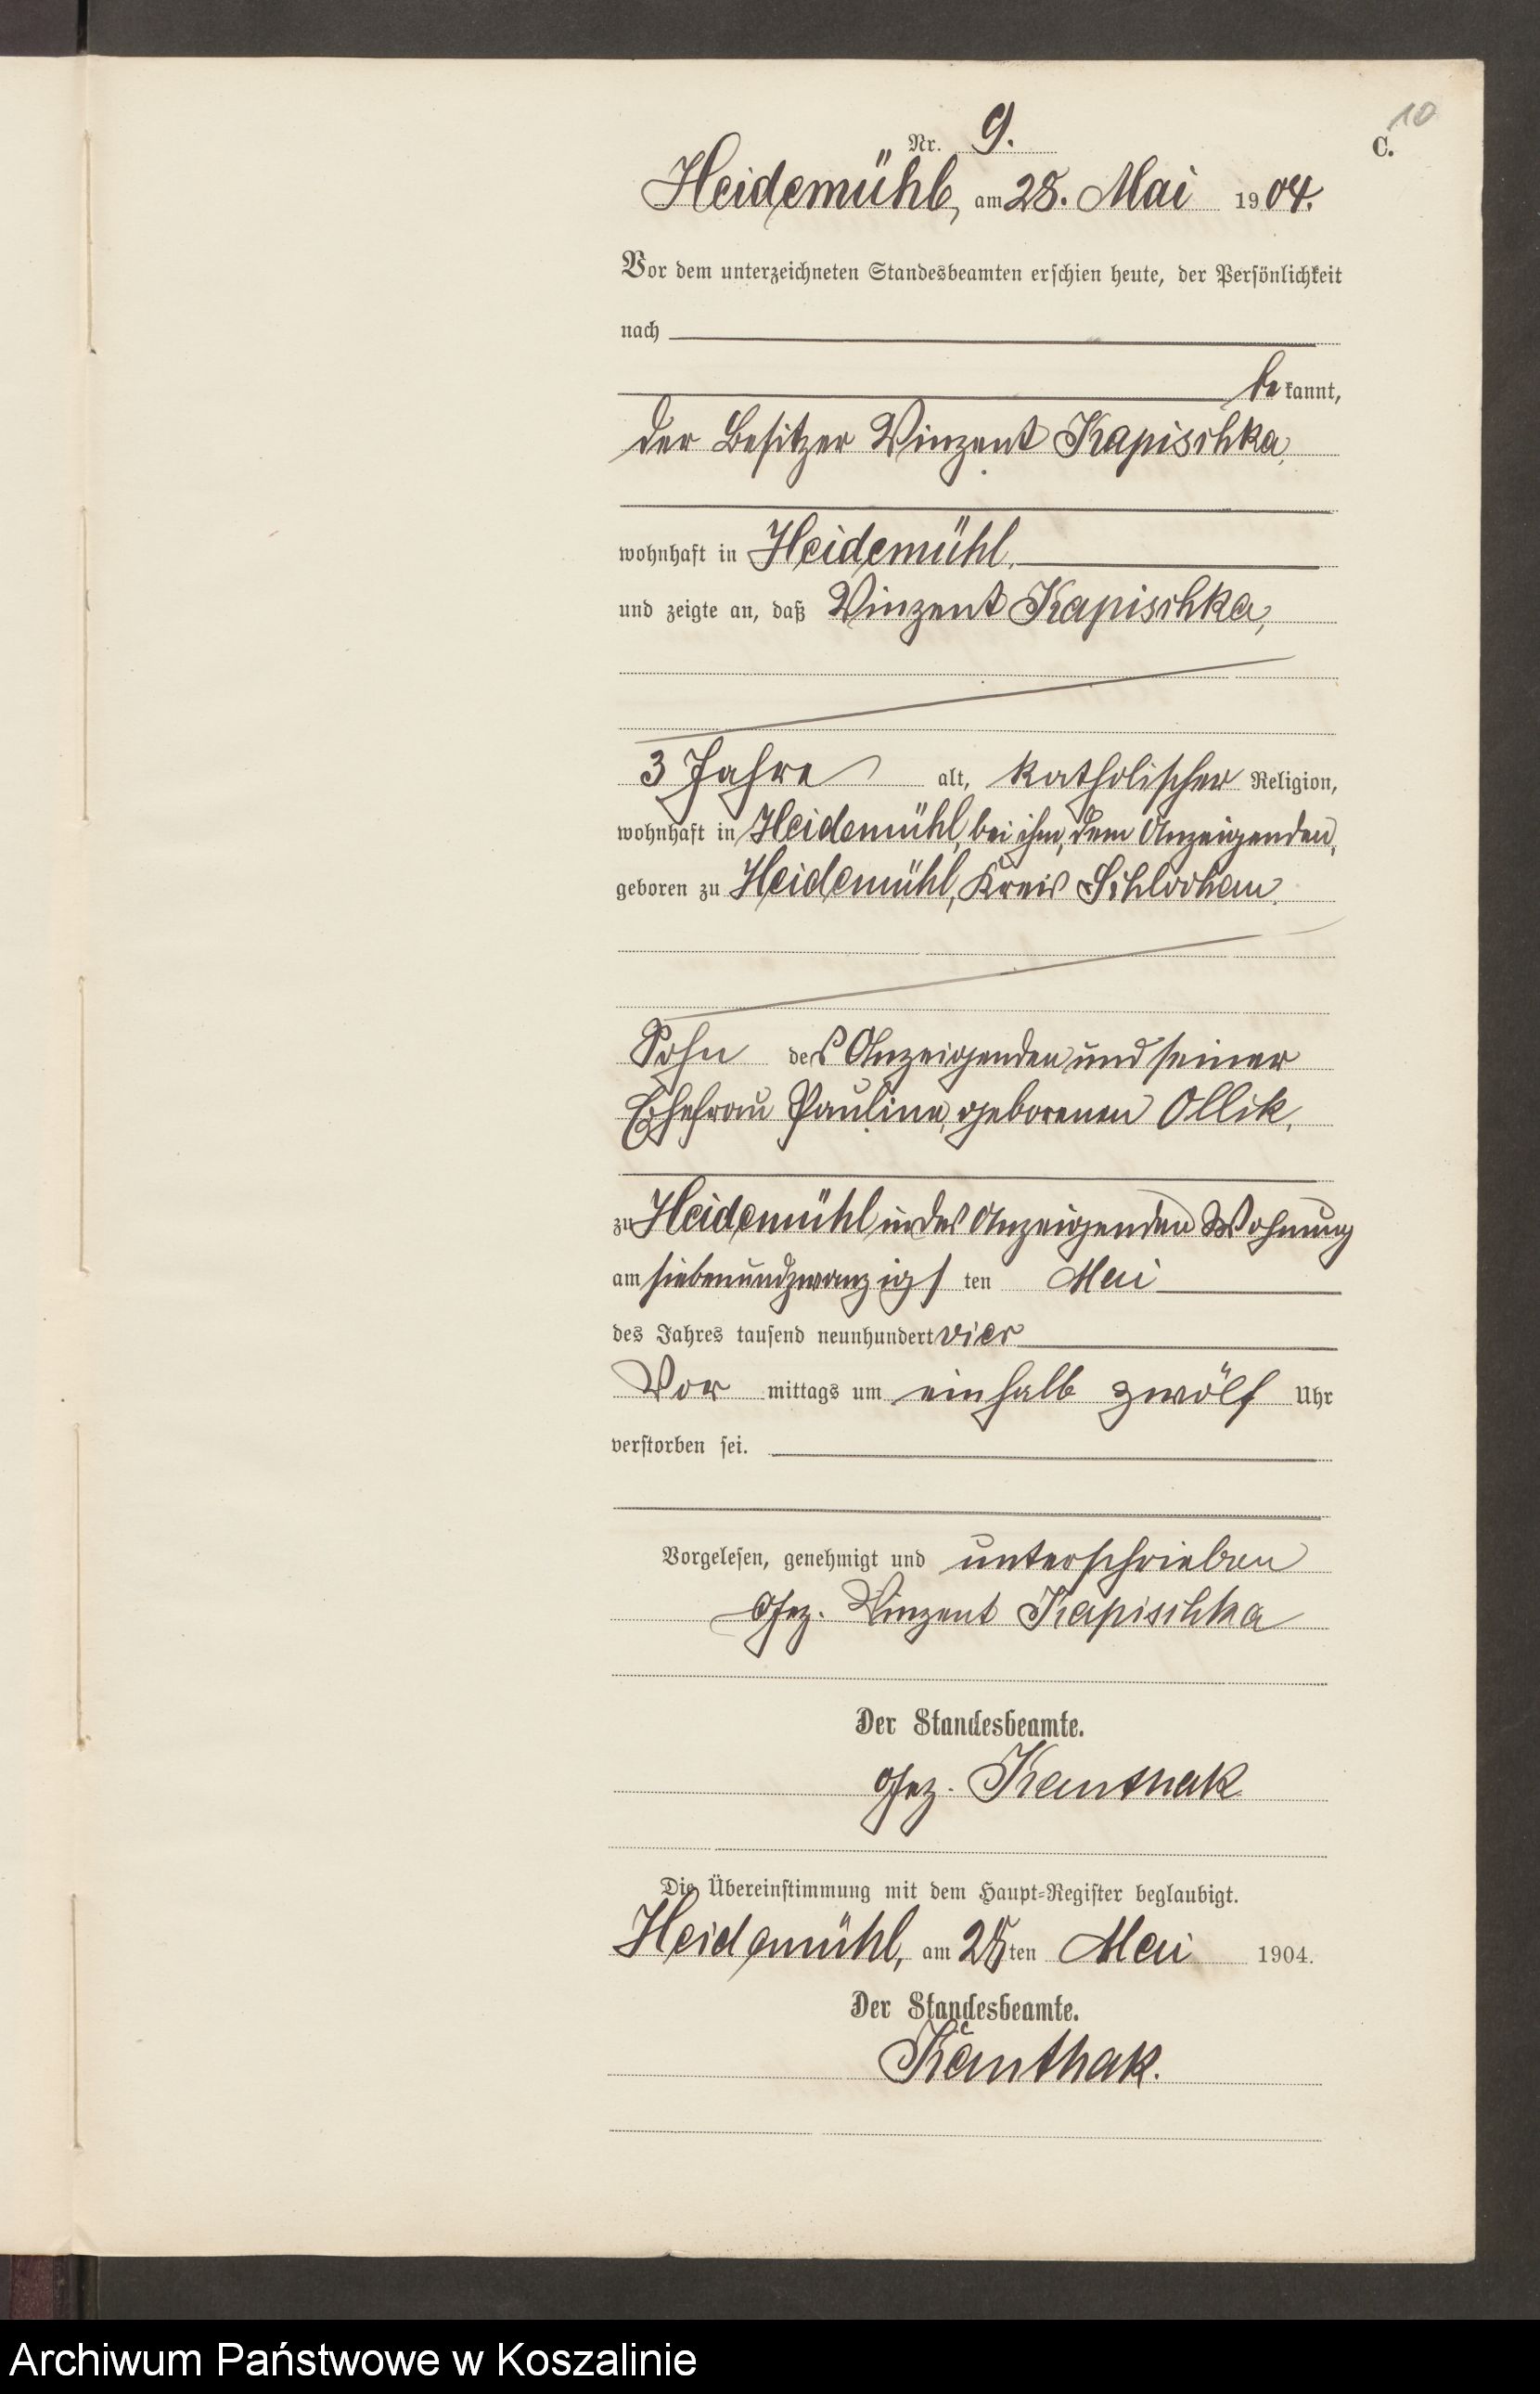 10
Nr. 9.
C.
Heidemühl, am 28. Mai 1904.
Vor dem unterzeichneten Standesbeamten erschien heute, der Persönlichkeit
nach
bekannt,
der Besitzer Vinzent Kapischka,
wohnhaft in Heidemühl,
und zeigte an, daß Vinzent Kapischka,
3 Jahre alt, katholischer Religion,
wohnhaft in Heidemühl, bei ihm, dem Anzeigenden,
geboren zu Heidemühl, Kreis Schlochau.
Sohn des Anzeigenden und seiner
Ehefrau Pauline, geborenen Ollik,
zu Heidemühl in des Anzeigenden Wohnung
am siebenundzwanzigsten Mai
des Jahres tausend neunhundert vier
Vor mittags um ein halb zwölf Uhr
verstorben sei.
Vorgelesen, genehmigt und unterschrieben
Gez. Vinzent Kapischka
Der Standesbeamte.
Gez. Kanthak
Die Übereinstimmung mit dem Haupt-Register beglaubigt.
Heidemühl, am 28ten Mai 1904.
Der Standesbeamte.
Kanthak.
Archiwum Państwowe w Koszalinie